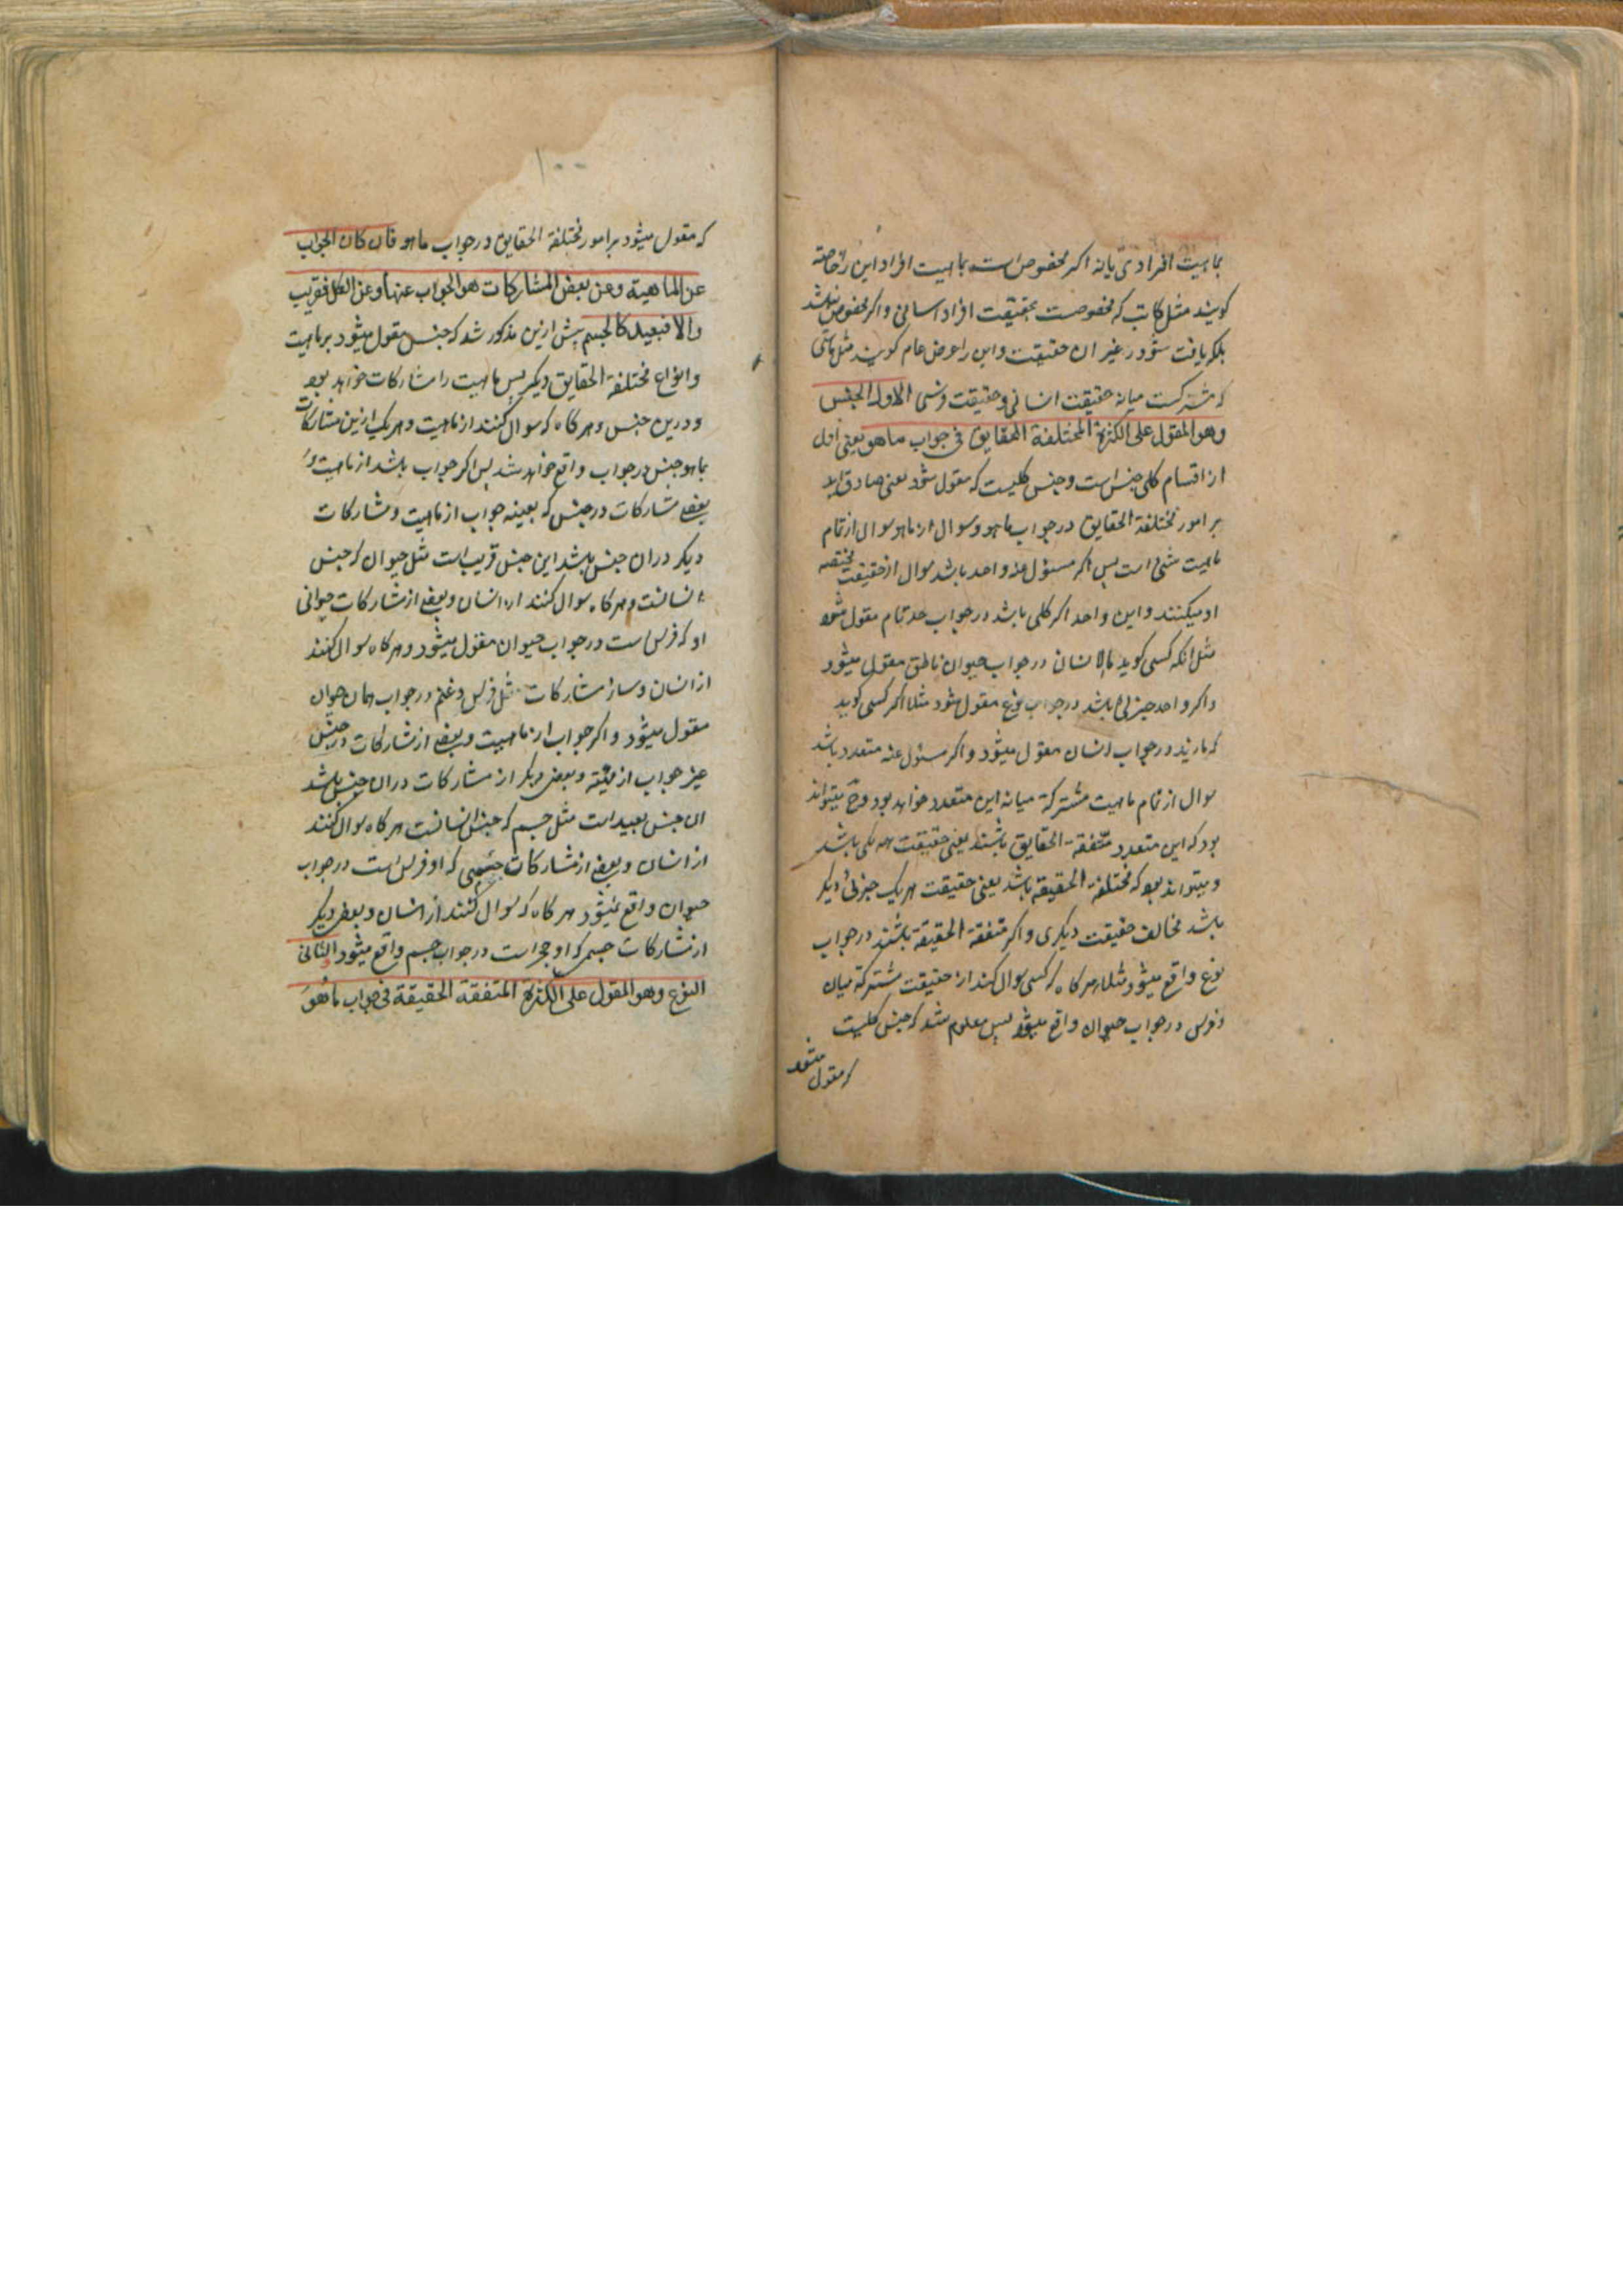 بماهیت افرادی یا نه اگر مخصوص است بماهیت افراد این را خاصه
کویند مثل کاتب که مخصوصست بحقیقت افراد انسانی و اکر مخصوص نباشد
بلکه یافت شود در غیر ان حقیقت و این را عرض عام کویند مثل ماشی
که مشترکست میانه حقیقت انسانی و حقیقت فرسی الاول الجنس
وهو المقول علی الکثرة المختلفة الحقایق فی جواب ما هو یعنی اول
از اقسام کلی جنس است و جنس کلیست که مقول شود یعنی صادق اید
بر امور مختلفة الحقایق در جواب ما هو و سوال از ما هو سوال از تمام
ماهیت شئ است پس اکر مسئول عنه واحد باشد سوال از حقیقت مختصه
او میکنند و این واحد اکر کلی باشد در جواب حد تمام مقول شود
مثل انکه کسی کوید ما الانسان در جواب حیوان ناطق مقول میشود
و اکر واحد جزئی باشد در جواب نوع مقول شود مثلا اکر کسی کوید
که ما زید در جواب انسان مقول میشود و اکر مسئول عنه متعدد باشد
سوال از تمام ماهیت مشترکة میانه این متعدد خواهد بود وح میتواند
بود که این متعدد متفقة الحقایق باشند یعنی حقیقت همه یکی باشد
و میتواند بود که مختلفة الحقیقة باشد یعنی حقیقت هر یک جزئی دیکر
باشد مخالف حقیقت دیکری و اکر متفقة الحقیقة باشند در جواب
نوع واقع میشود مثلا هر کاه که کسی سوال کند از حقیقت مشترکة میان
و فرس در جواب حیوان واقع میشود پس معلوم شد که جنس کلیست
که مقول میشود
۱۰۰
که مقول میشود بر امور مختلفة الحقایق در جواب ما هو فان کان الجواب
عن الماهیة وعن بعض المشارکات هو الجواب عنها وعن الکل فقریب
والا فبعید کالجسم پیش ازین مذکور شد که جنس مقول میشود بر ماهیت
و انواع مختلفة الحقایق دیکر پس ماهیت را مشارکات خواهد بود
و درین جنس و هر کاه که سوال کنند از ماهیت و هر یک ازین مشارکات
بما هو جنس در جواب واقع خواهد شد پس اکر جواب باشد از ماهیت و
بعضی مشارکات در جنس که بعینه جواب از ماهیت و مشارکات
دیکر در ان جنس باشد این جنس قریب است مثل حیوان که جنس
انسانست و هر کاه سوال کنند از انسان و بعضی از مشارکات حیوانی
او که فرس است در جواب حیوان مقول میشود و هر کاه سوال کنند
از انسان و سائر مشارکات مثل فرس و غنم در جواب همان حیوان
مقول میشود و اکر جواب از ماهیت و بعضی از مشارکات در جنس
غیر جواب از ماهیة و بعض دیکر از مشارکات در ان جنس باشد
ان جنس بعید است مثل جسم که جنس انسانست هر کاه سوال کنند
از انسان و بعضی از مشارکات جسمی که او فرس است در جواب
حیوان واقع میشود هر کاه که سوال کنند از انسان و بعض دیکر
از مشارکات جسم که او حجر است در جواب جسم واقع میشود الثانی
النوع وهو المقول علی الکثرة المتفقة الحقیقة فی جواب ما هو